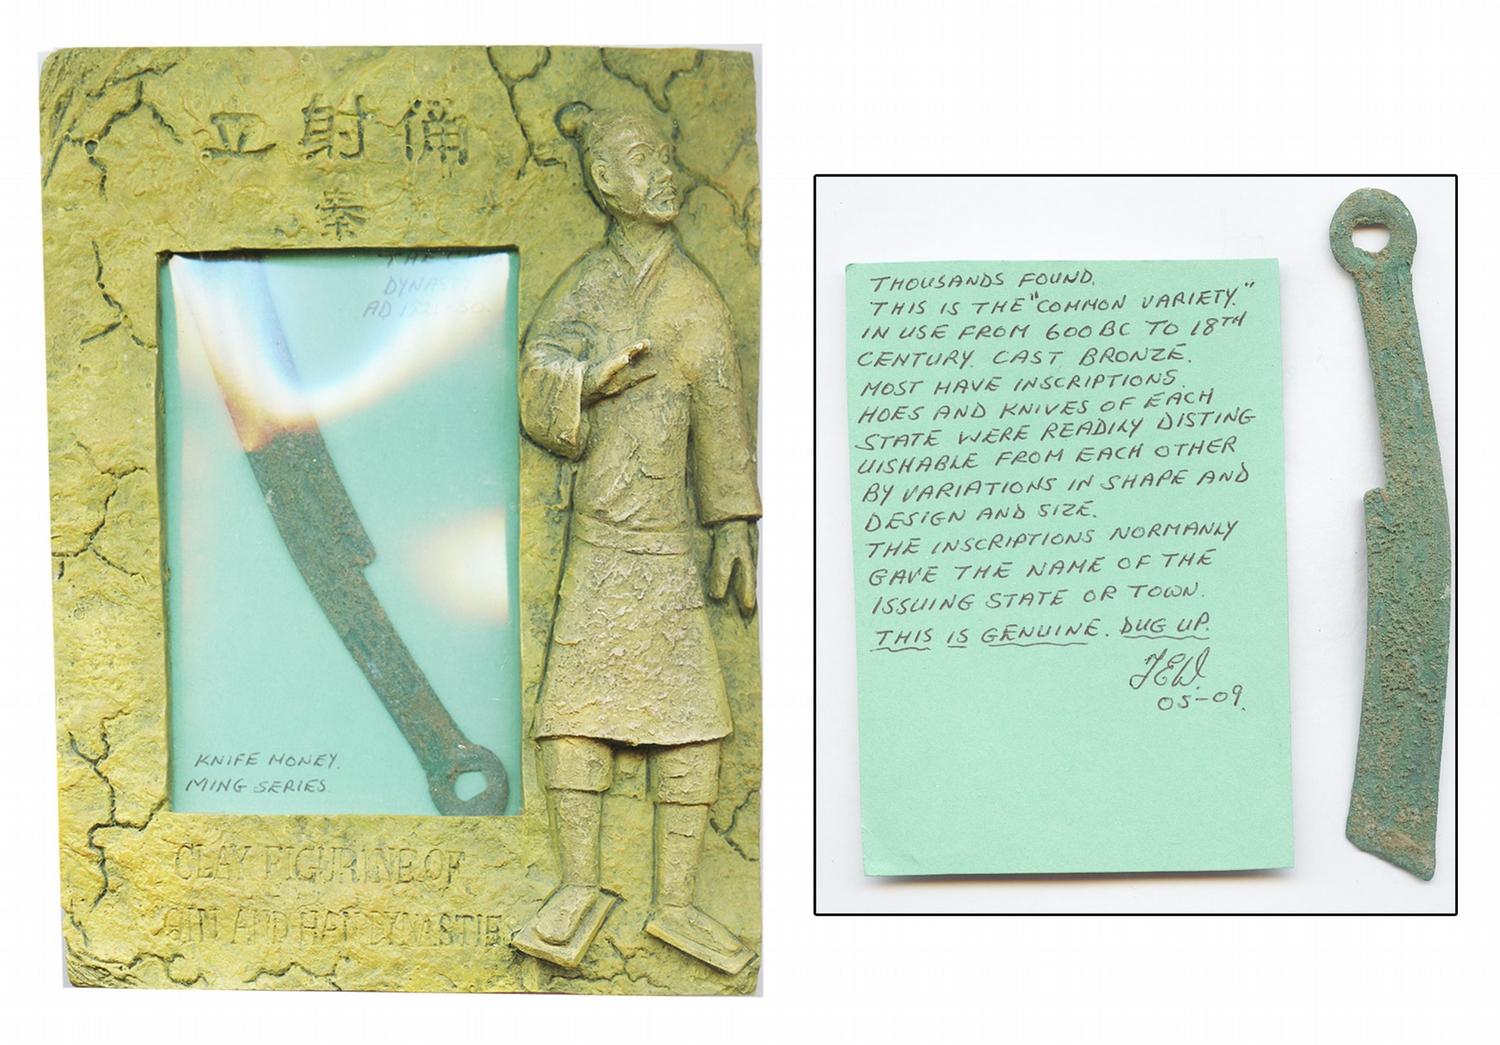 立射俑
秦
DYNASTY
AD
KNIFE MONEY.
MING SERIES.
CLAY FIGURINE OF
QIN AND HAN DYNASTIES
THOUSANDS FOUND.
THIS IS THE "COMMON VARIETY."
IN USE FROM 600 BC TO 18TH
CENTURY. CAST BRONZE.
MOST HAVE INSCRIPTIONS.
HOES AND KNIVES OF EACH
STATE WERE READILY DISTING
UISHABLE FROM EACH OTHER
BY VARIATIONS IN SHAPE AND
DESIGN AND SIZE.
THE INSCRIPTIONS NORMANLY
GAVE THE NAME OF THE
ISSUING STATE OR TOWN.
THIS IS GENUINE. DUG UP.
05-09.